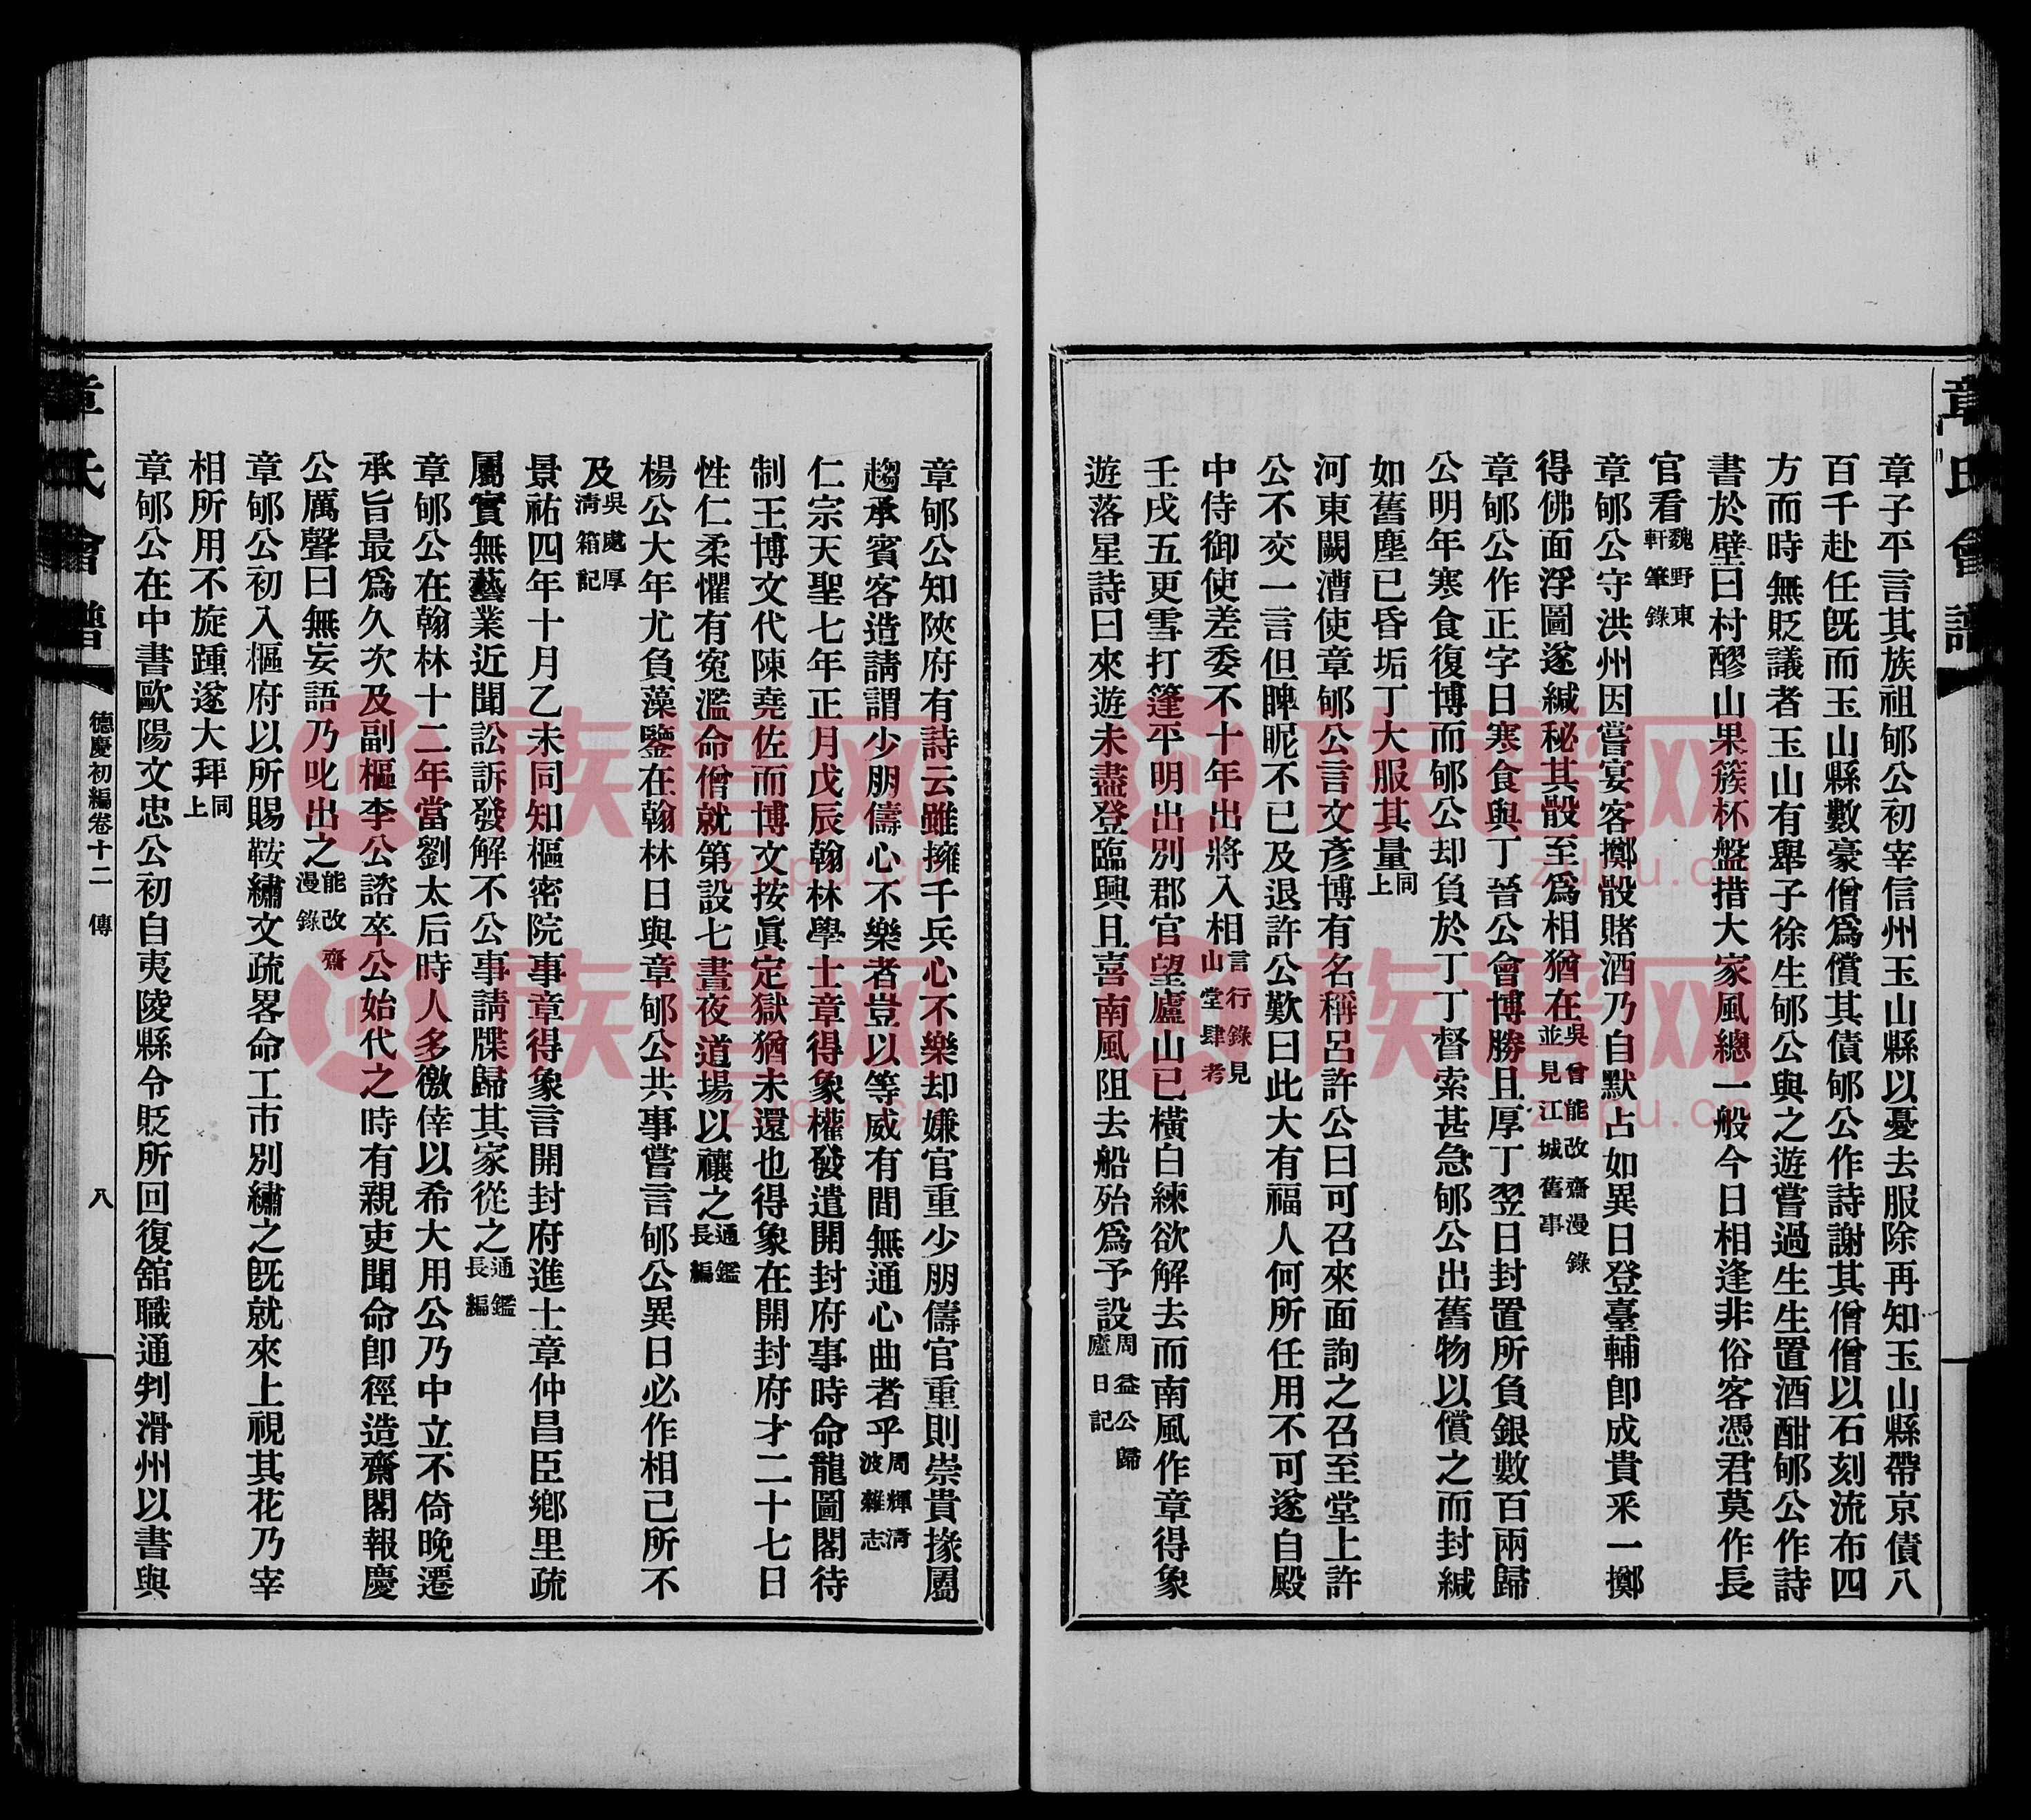 章氏會譜
章子平言其族祖郇公初宰信州玉山縣以憂去服除再知玉山縣帶京債八
百千赴任旣而玉山縣數豪僧爲償其債郇公作詩謝其僧僧以石刻流布四
方而時無貶議者玉山有舉子徐生郇公與之遊嘗過生生置酒酣郇公作詩
書於壁曰村醪山果簇杯盤措大家風總一般今日相逢非俗客憑君莫作長
官看魏野東軒筆錄
章郇公守洪州因嘗宴客擲骰賭酒乃自默占如異日登臺輔卽成貴采一擲
得佛面浮圖遂緘秘其骰至爲相猶在吳曾能改齋漫錄並見江城舊事
章郇公作正字日寒食與丁晉公會博勝且厚丁翌日封置所負銀數百兩歸
公明年寒食復博而郇公却負於丁丁督索甚急郇公出舊物以償之而封緘
如舊塵已昏垢丁大服其量同上
河東闕漕使章郇公言文彥博有名稱呂許公曰可召來面詢之召至堂上許
公不交一言但睥昵不已及退許公歎曰此大有福人何所任用不可遂自殿
中侍御使差委不十年出將入相言行錄見山堂肆考
壬戌五更雪打篷平明出別郡官望廬山已橫白練欲解去而南風作章得象
遊落星詩曰來遊未盡登臨興且喜南風阻去船殆爲予設周益公歸廬日記
章郇公知陝府有詩云雖擁千兵心不樂却嫌官重少朋儔官重則崇貴掾屬
趨承賓客造請謂少朋儔心不樂者豈以等威有間無通心曲者乎周輝淸波雜志
仁宗天聖七年正月戊辰翰林學士章得象權發遣開封府事時命龍圖閣待
制王博文代陳堯佐而博文按眞定獄猶未還也得象在開封府才二十七日
性仁柔懼有寃濫命僧就第設七晝夜道場以禳之通鑑長編
楊公大年尤負藻鑒在翰林日與章郇公共事嘗言郇公異日必作相己所不
及吳處厚淸箱記
景祐四年十月乙未同知樞密院事章得象言開封府進士章仲昌臣鄉里疏
屬實無藝業近聞訟訴發解不公事請牒歸其家從之通鑑長編
章郇公在翰林十二年當劉太后時人多徼倖以希大用公乃中立不倚晚遷
承旨最爲久次及副樞李公諮卒公始代之時有親吏聞命卽徑造齋閣報慶
公厲聲曰無妄語乃叱出之能改齋漫錄
章郇公初入樞府以所賜鞍繡文疏畧命工市別繡之旣就來上視其花乃宰
相所用不旋踵遂大拜同上
章郇公在中書歐陽文忠公初自夷陵縣令貶所回復舘職通判滑州以書與
章氏會譜
德慶初編卷十二 傳
八
族譜网
zupu.cn
族譜网
zupu.cn
族譜网
zupu.cn
族譜网
zupu.cn